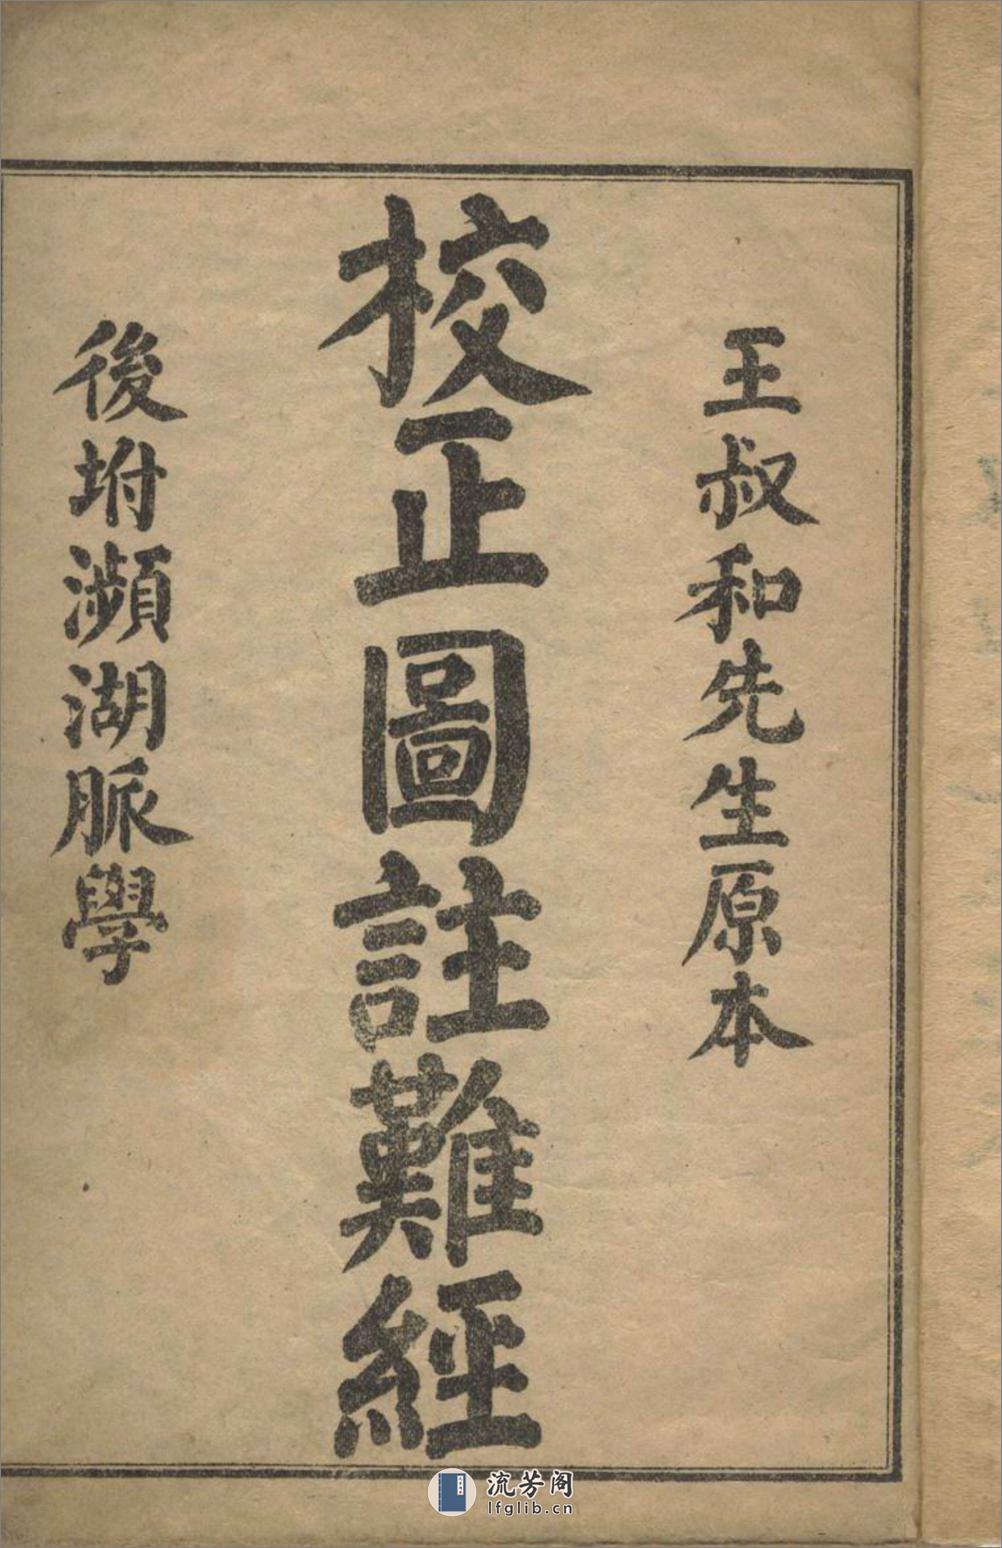 王叔和先生原本
校正圖註難經
後坿瀕湖脈學
流芳阁
lfglib.cn